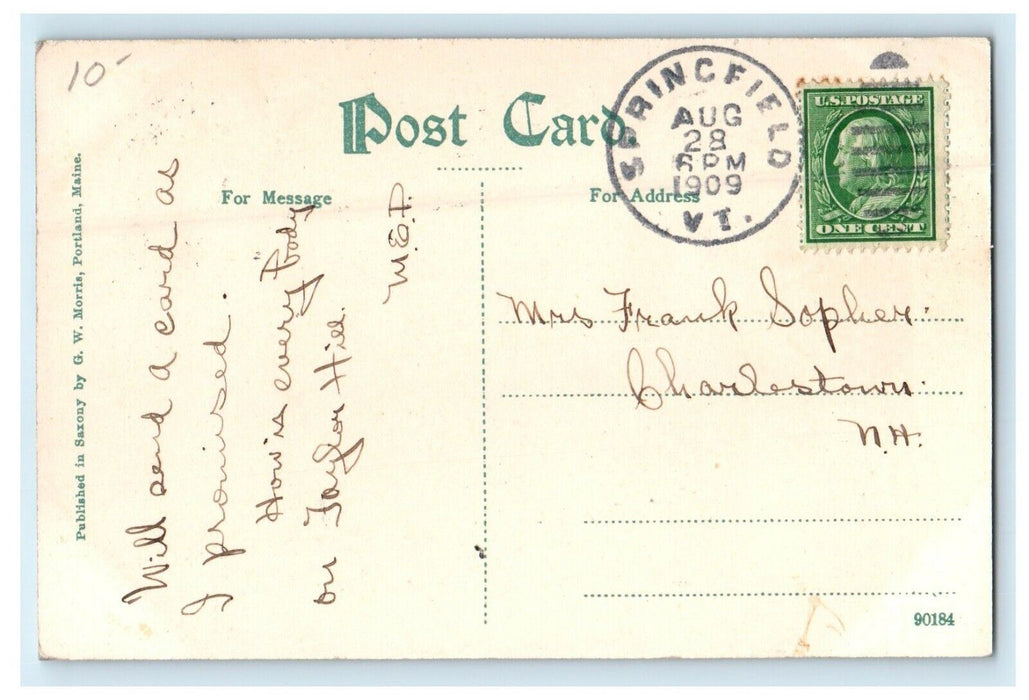 10-
Post Card
For Message
For Address
SPRINGFIELD
AUG
28
PM
1909
VT.
U.S. POSTAGE
ONE CENT
Published in Saxony by G. W. Morris, Portland, Maine.
Will send a card as
I promised.
How is every body
on Taylor Hill.
M.E.P.
Mrs Frank Sopher.
Charlestown.
N.H.
90184